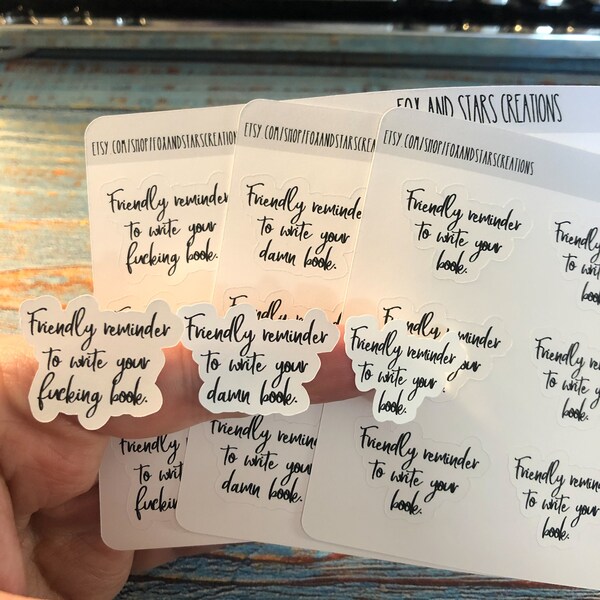 FOX AND STARS CREATIONS
ETSY.COM/SHOP/FOXANDSTARSCREATION
ETSY.COM/SHOP/FOXANDSTARSCREA
ETSY.COM/SHOP/FOXANDSTARSCREATIONS
Friendly reminder
to write your
fucking book.
Friendly reminde
to write your
damn book.
Friendly reminder
to write your
book.
Friendly
to wri
book
Friendly reminder
to write your
fucking book.
Friendly reminder
to write your
damn book.
Friendly reminder
to write your
book.
Friendly reminder
your
Friendly remi
to write y
book.
Friendly
to writ
fuckin
Friendly remin
to write your
damn book.
Friendly reminder
to write your
book.
Friendly remin
to write y
book.